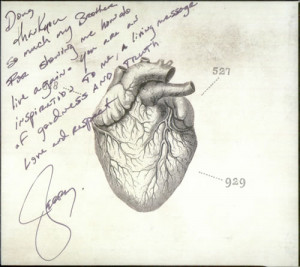 Doug
Thank you
so much my Brother
For showing me how to
live again. You are an
inspiration to me, a living message
of goodness AND TRUTH
Love and respect
527
929